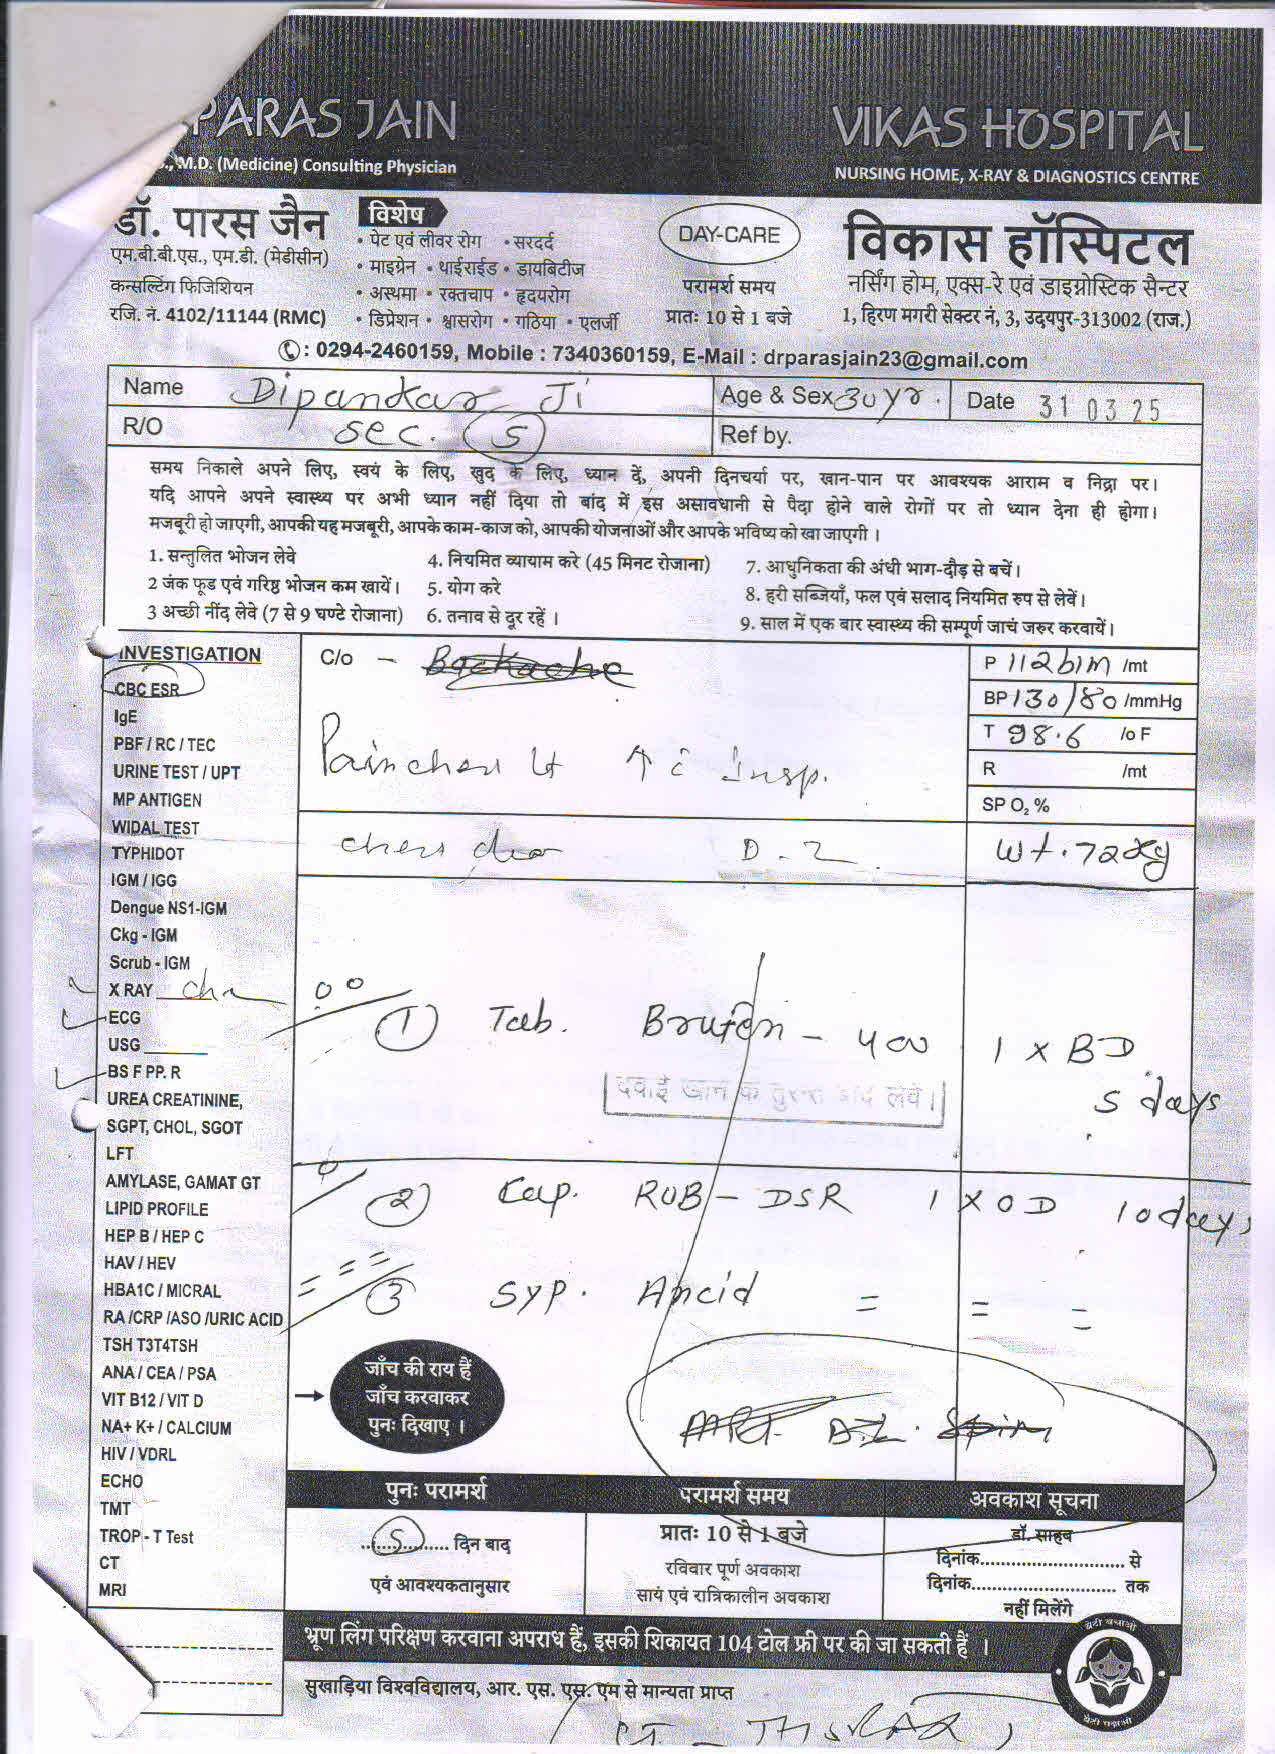 PARAS JAIN
M.D. (Medicine) Consulting Physician
VIKAS HOSPITAL
NURSING HOME, X-RAY & DIAGNOSTICS CENTRE
डॉ. पारस जैन
एम.बी.बी.एस., एम.डी. (मेडीसीन)
कन्सल्टिंग फिजिशियन
रजि. नं. 4102/11144 (RMC)
विशेष
• पेट एवं लीवर रोग • सरदर्द
• माइग्रेन • थाईराईड • डायबिटीज
• अस्थमा • रक्तचाप • हृदयरोग
• डिप्रेशन • श्वासरोग • गठिया • एलर्जी
DAY-CARE
परामर्श समय
प्रातः 10 से 1 बजे
विकास हॉस्पिटल
नर्सिंग होम, एक्स-रे एवं डाइग्नोस्टिक सैन्टर
1, हिरण मगरी सेक्टर नं, 3, उदयपुर-313002 (राज.)
: 0294-2460159, Mobile : 7340360159, E-Mail : drparasjain23@gmail.com
Name Dipankar Ji Age & Sex 30 yr. Date 31 03 25
R/O sec. (5) Ref by.
समय निकाले अपने लिए, स्वयं के लिए, खुद के लिए, ध्यान दें, अपनी दिनचर्या पर, खान-पान पर आवश्यक आराम व निद्रा पर।
यदि आपने अपने स्वास्थ्य पर अभी ध्यान नहीं दिया तो बांद में इस असावधानी से पैदा होने वाले रोगों पर तो ध्यान देना ही होगा।
मजबूरी हो जाएगी, आपकी यह मजबूरी, आपके काम-काज को, आपकी योजनाओं और आपके भविष्य को खा जाएगी ।
1. सन्तुलित भोजन लेवे
2 जंक फूड एवं गरिष्ठ भोजन कम खायें।
3 अच्छी नींद लेवे (7 से 9 घण्टे रोजाना)
4. नियमित व्यायाम करे (45 मिनट रोजाना)
5. योग करे
6. तनाव से दूर रहें ।
7. आधुनिकता की अंधी भाग-दौड़ से बचें।
8. हरी सब्जियाँ, फल एवं सलाद नियमित रुप से लेवें।
9. साल में एक बार स्वास्थ्य की सम्पूर्ण जाचं जरुर करवायें।
INVESTIGATION
CBC ESR
IgE
PBF / RC / TEC
URINE TEST / UPT
MP ANTIGEN
WIDAL TEST
TYPHIDOT
IGM / IGG
Dengue NS1-IGM
Ckg - IGM
Scrub - IGM
X RAY
ECG
USG
BS F PP. R
UREA CREATININE,
SGPT, CHOL, SGOT
LFT
AMYLASE, GAMAT GT
LIPID PROFILE
HEP B / HEP C
HAV / HEV
HBA1C / MICRAL
RA /CRP /ASO /URIC ACID
TSH T3T4TSH
ANA / CEA / PSA
VIT B12 / VIT D
NA+ K+ / CALCIUM
HIV / VDRL
ECHO
TMT
TROP - T Test
CT
MRI
C/o - Backache
Insp.
D - 2
P 112 b/m /mt
BP 130/80 /mmHg
T 98.6 /o F
R /mt
SP O₂ %
Wt. 72 kg
1 Tab. Brufen - 400 1 x BD
5 days
दवाई खाने के तुरन्त बाद लेवें।
2 Cap. RUB - DSR 1 x OD 10 days
3 Syp. Ancid = = =
जाँच की राय हैं
जाँच करवाकर
पुनः दिखाए ।
पुनः परामर्श
5 दिन बाद
एवं आवश्यकतानुसार
परामर्श समय
प्रातः 10 से 1 बजे
रविवार पूर्ण अवकाश
सायं एवं रात्रिकालीन अवकाश
अवकाश सूचना
डॉ. साहब
दिनांक............................ से
दिनांक............................ तक
नहीं मिलेंगे
भ्रूण लिंग परिक्षण करवाना अपराध हैं, इसकी शिकायत 104 टोल फ्री पर की जा सकती हैं ।
सुखाड़िया विश्वविद्यालय, आर. एस. एस. एम से मान्यता प्राप्त
बेटी बचाओ
बेटी पढ़ाओ